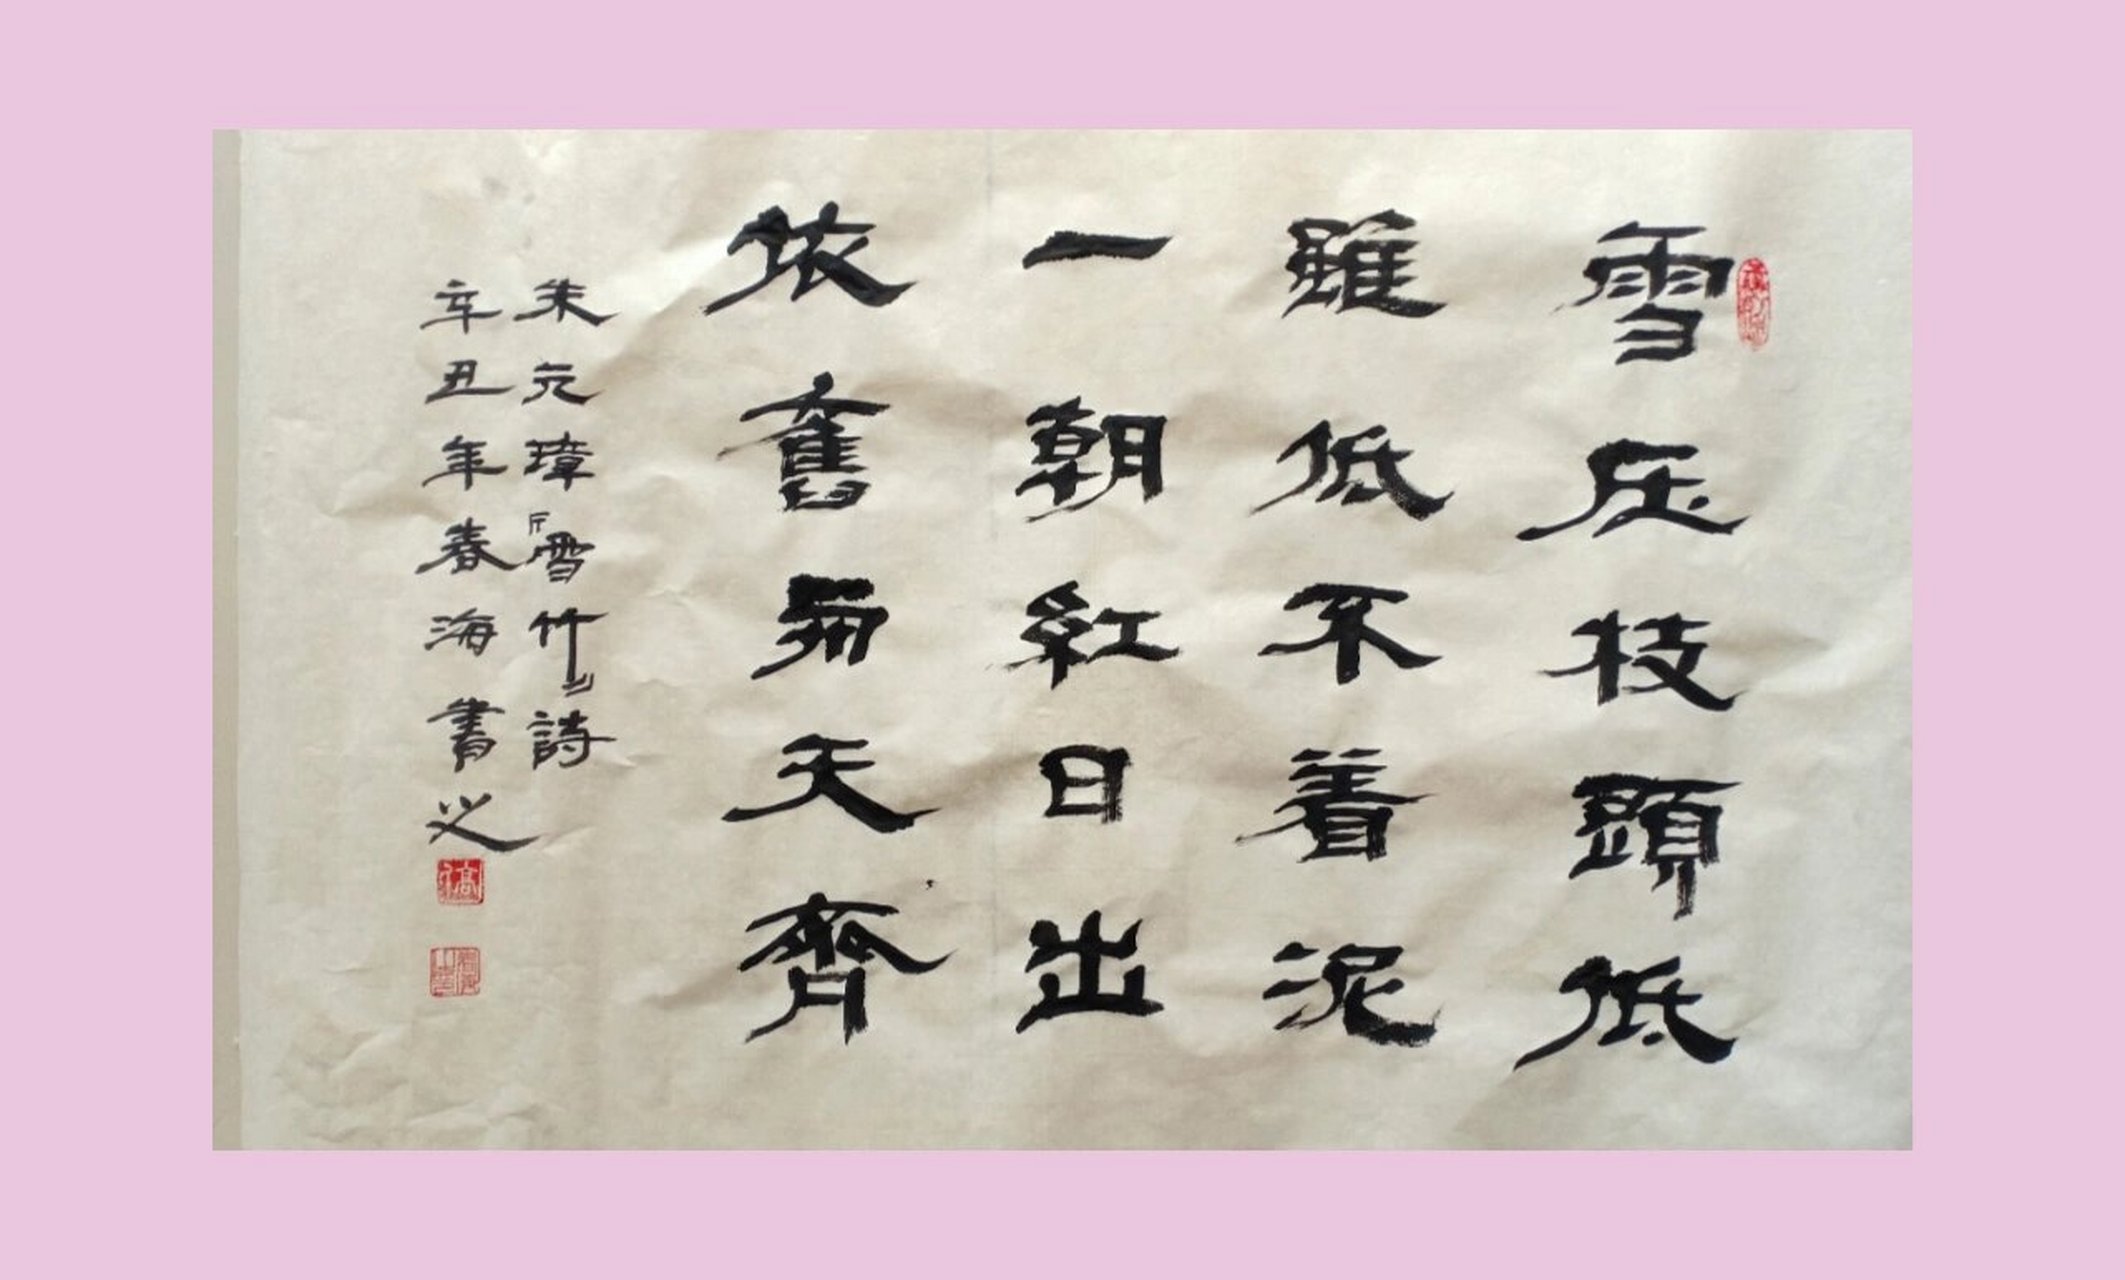 雪压枝頭低
雖低不着泥
一朝紅日出
依舊與天齊
朱元璋雪竹詩
辛丑年春海書